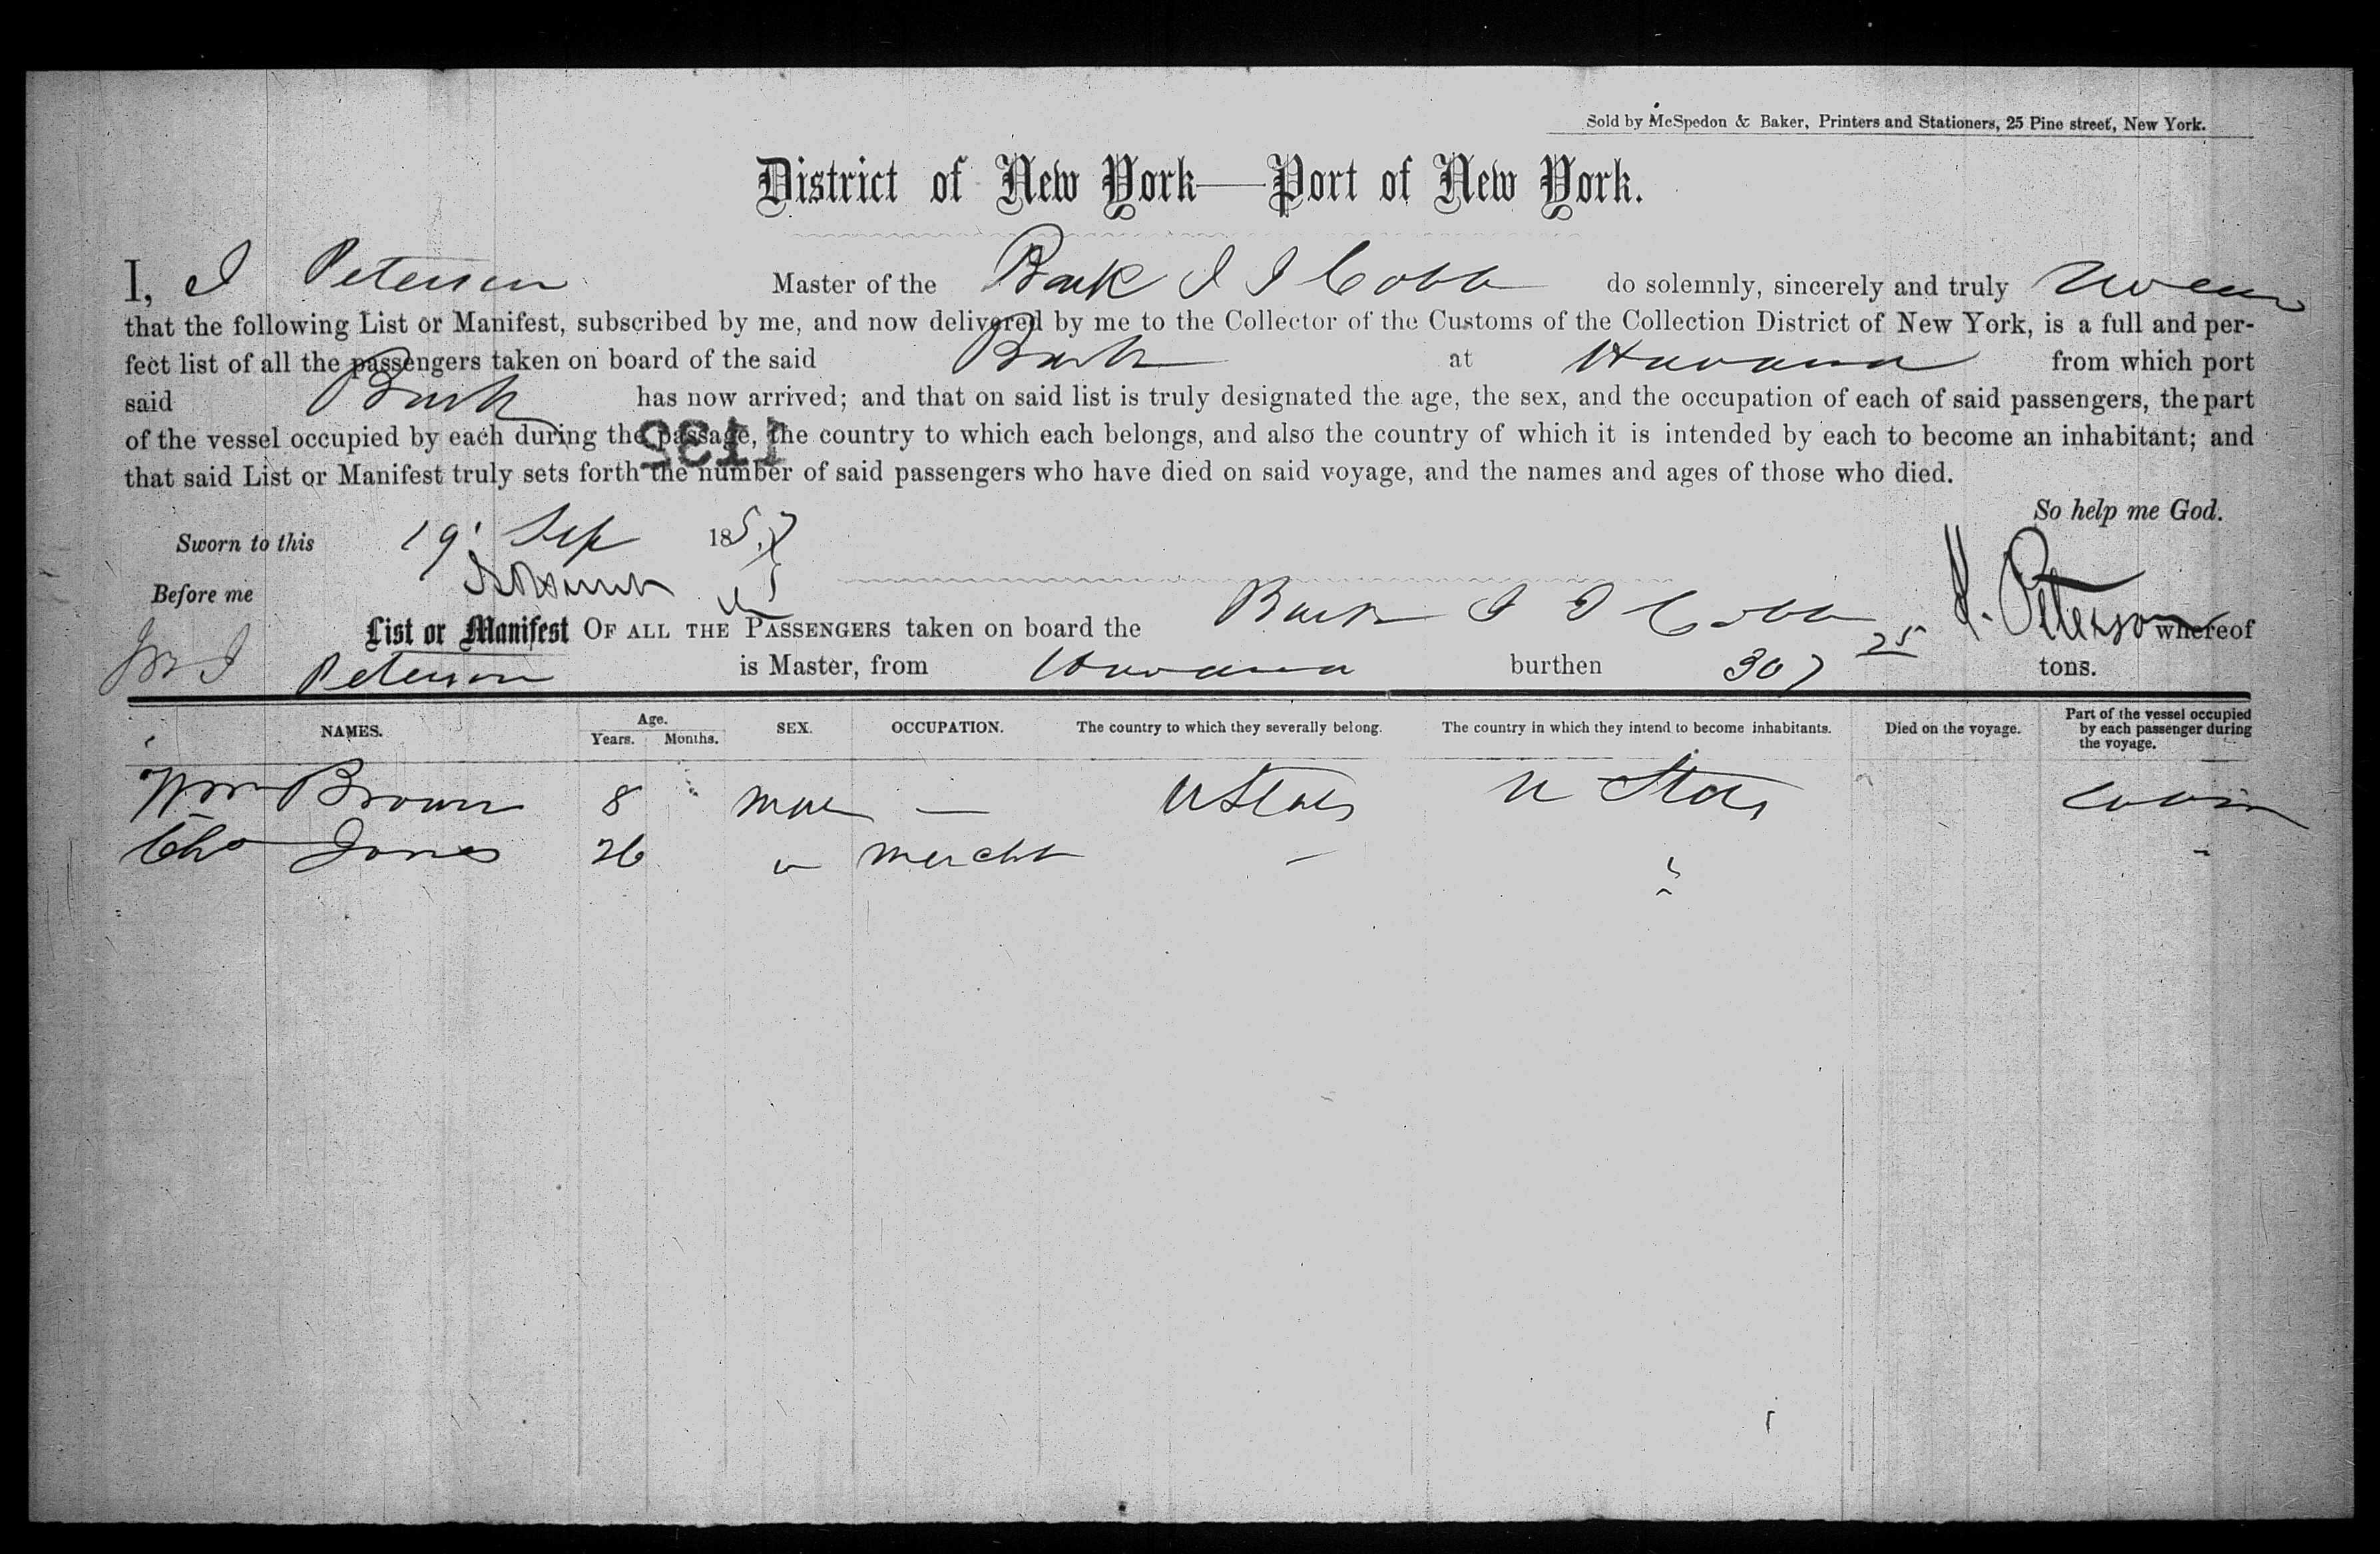 Sold by McSpedon & Baker, Printers and Stationers, 25 Pine street, New York.
District of New York—Port of New York.
I, J Peterson Master of the Bark J J Cobb do solemnly, sincerely and truly swear
that the following List or Manifest, subscribed by me, and now delivered by me to the Collector of the Customs of the Collection District of New York, is a full and per-
fect list of all the passengers taken on board of the said Bark at Havana from which port
said Bark has now arrived; and that on said list is truly designated the age, the sex, and the occupation of each of said passengers, the part
of the vessel occupied by each during the passage, the country to which each belongs, and also the country of which it is intended by each to become an inhabitant; and
1132
that said List or Manifest truly sets forth the number of said passengers who have died on said voyage, and the names and ages of those who died.
So help me God.
Sworn to this 19 Sep 1857
Before me
J. Peterson
List or Manifest OF ALL THE PASSENGERS taken on board the Bark J J Cobb whereof
J Peterson is Master, from Havana burthen 307 25 tons.
NAMES. Age. Years. Months. SEX. OCCUPATION. The country to which they severally belong. The country in which they intend to become inhabitants. Died on the voyage. Part of the vessel occupied by each passenger during the voyage.
Wm Brown 8 male — U States U States Cabin
Chs Jones 26 " Mercht - "